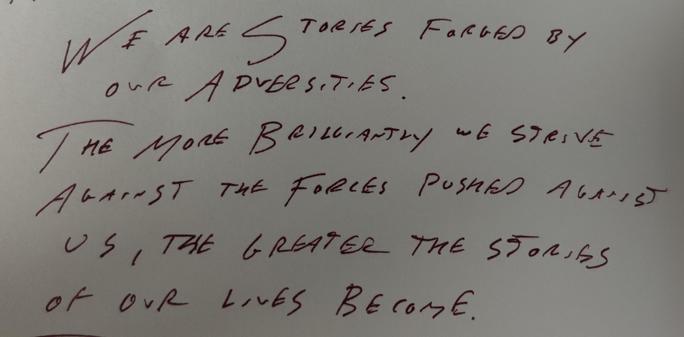 WE ARE STORIES FORGED BY
OUR ADVERSITIES.
THE MORE BRILLIANTLY WE STRIVE
AGAINST THE FORCES PUSHED AGAINST
US, THE GREATER THE STORIES
OF OUR LIVES BECOME.